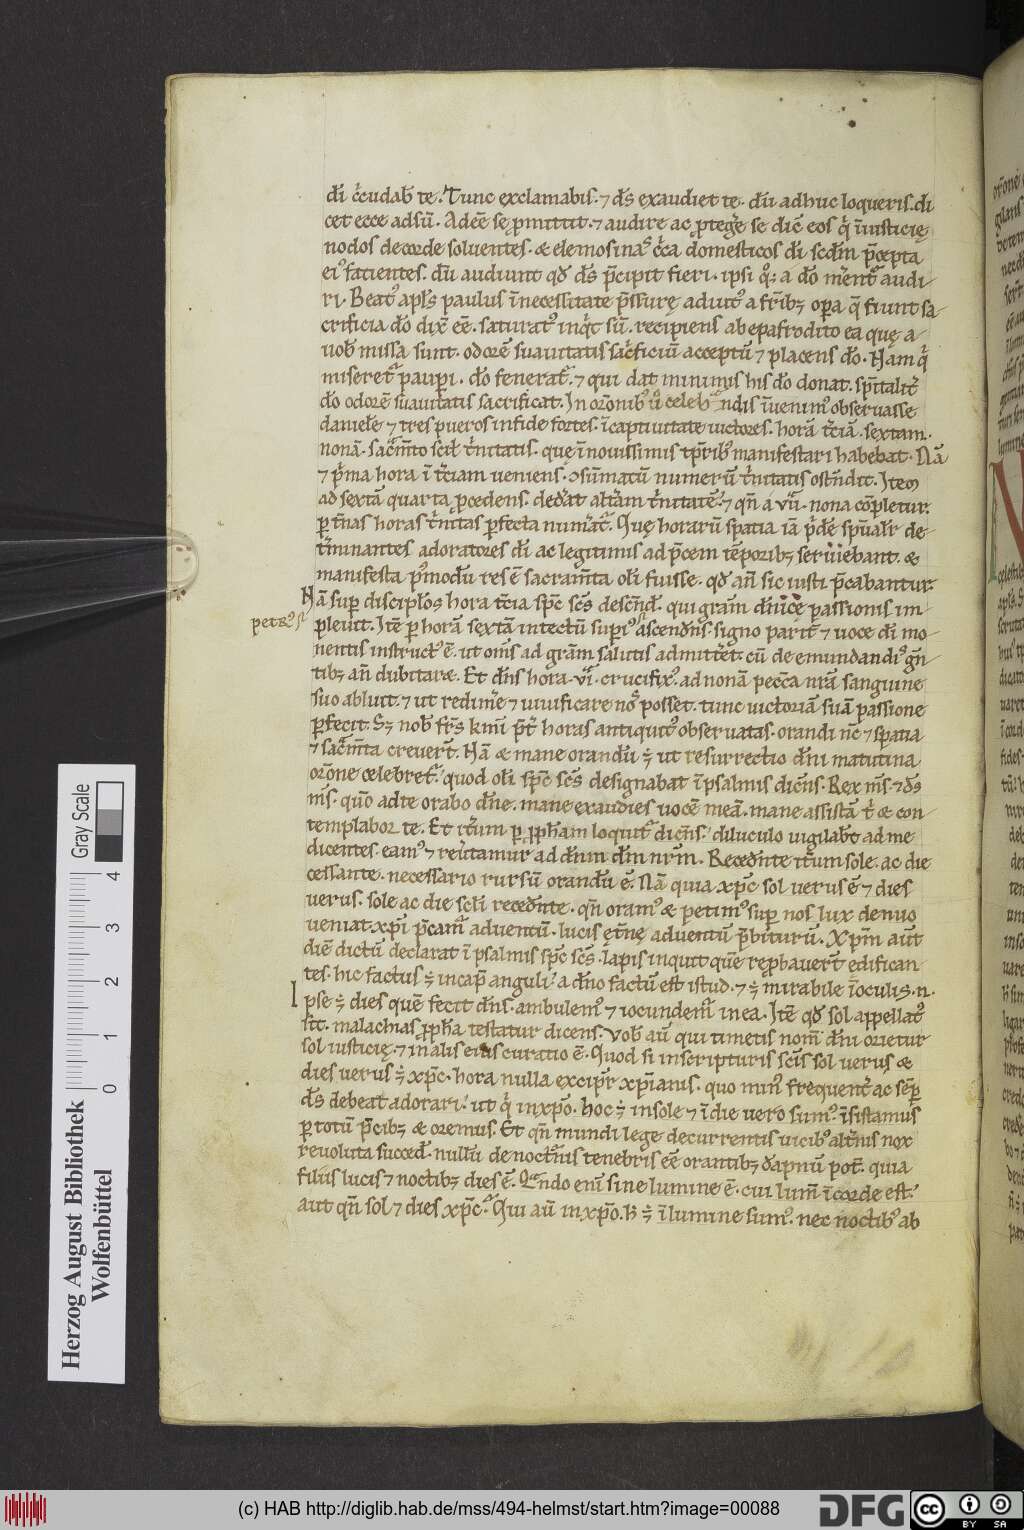 dī c̄cudab̄ te. Tunc exclamabis. ⁊ dс̄ exaudiet te. dū adhuc loqueris. di
cet ecce adsū. Adeē se ꝑmittit. ⁊ audire ac ꝓtegē se dic̄ eos q̇ iniusticię
nodos de corde soluentes. & elemosinas c̄ca domesticos dī scd̄m p̄cepta
ei᾽ facientes. dū audiunt qd̄ ds̄ p̄cipit fieri. ipsi q̨; a dō mēnt᾽ audi
ri. Beat᾽ apl̄s paulus ī necessitate p̄ssurę adiut᾽ a fr̄ib; oꝑa q̄ fiunt sa
crificia dō dix̄ eē. saturat᾽ inq̇t sū. recipiens ab epafrodito ea quę a
uob̄ missa sunt. odorē suauitatis sac̄ficiū acceptū ⁊ placens dō. Nam q̇
miseret᾽ pauꝑi. dō fenerat᾽. ⁊ qui dat minimis his dō donat. sp̄italit᾽
dō odorē suauitatis sacrificat. In orōnib᾽ ů celebrandis īuenim᾽ obseruasse
daniele ⁊ tres pueros in fide fortes. ī captiuitate uictores. horā t̄ciā. sextam.
nonā. sac̄mto scil̄ t̄nitatis. quę ī nouissimis tp̄rib᾽ manifestari habebat. Nā
⁊ ṗma hora ī t̄ciam ueniens. ɔsūmatū numerū t̄nitatis ost̄ndit. Item
ad sextā quarta ꝓcedens. dec̄lat alt̄am t̄nitatē. ⁊ qn̄ a vii. nona cōpletur.
ꝑ t̄nas horas t̄nitas ꝑfecta num̄at᾽. Quę horarū spatia iā ṗdē sp̄ualit̄ de
t̄minantes adoratores dī ac legitimis ad p̄cem tēporib; seruiebant. &
manifesta p᾽modū res ē sacram̄ta oli fuisse. qd̄ an̄ sic iusti p̄cabantur.
Nā suꝑ discipl̄os hora t̄cia sp̄c sc̄s desc̄nd̄. qui gr̄am dn̄icę passionis im
petr᾽
pleuit. Itē ꝑ horā sextā in tectū supi᾽ ascend̄ns. signo parit̄ ⁊ uoce dī mo
nentis instruct᾽ ē. ut om̄s ad gr̄am salutis admitt̄et. cū de emundandis gn̄
tib; an̄ dubitaræ. Et dn̄s hora. vi. crucifix᾽. ad nonā pecc̄a nr̄a sanguine
suo abluit. ⁊ ut redim̄e ⁊ uiuificare nos posset. tunc uictoriā suā passione
ꝑfecit. S; nob̄ fr̄s kmi p̄t̄ horas antiquit᾽ obseruatas. orandi nc̄ ⁊ spatia
⁊ sac̄mta creuert̄. Nā & mane orandū ÷ ut resurrectio dn̄i matutina
orōne celebret᾽. quod oli sp̄c sc̄s designabat ī psalmis dic̄ns. Rex ms̄ ⁊ ds̄
ms̄. quō ad te orabo dn̄e. mane exaudies uocē meā. mane assistā ṫ & con
templabor te. Et it̄um ꝑ ꝓph̄am loquit᾽ dic̄ns. diluculo uigilab̄t ad me
dicentes. eam᾽ ⁊ reu̇tamur ad dn̄m dm̄ nr̄m. Reced̄nte it̄um sole. ac die
cessante. necessario rursū orandū ē. Nā quia xp̄c sol uerus ē ⁊ dies
uerus. sole ac die scl̄i reced̄nte. qn̄ oram᾽ & petim᾽ suꝑ nos lux denuo
ueniat. xp̄i p̄cam᾽ aduentū. lucis ęt̄nę aduentū p̄biturū. Xp̄m aut̄
diē dictū declarat ī psalmis sp̄c sc̄s. lapis inquit quē reꝓbauer̄t edifican
tes. hic factus ÷ in cap̄ anguli. a dn̄o factū est istud. ⁊ ÷ mirabile ī oculis. n.
Ipse ÷ dies quē fecit dn̄s. ambulem᾽ ⁊ iocundem᾽ in ea. Itē qd̄ sol appellat᾽
sit. malachias ꝓph̄a testatur dicens. Vob̄ aū qui timetis nom̄ dn̄i orietur
sol iusticię. ⁊ in alis eius curatio ē. Quod si in scripturis scīs sol uerus &
dies uerus ÷ xp̄c. hora nulla excipit᾽ xp̄ianis. quo min᾽ frequent̄ ac seꝑ
ds̄ debeat adorari. ut q̇ in xp̄o. hoc ÷ in sole ⁊ ī die uero sum᾽. īsistamus
ꝑ totū p̄cib; & oremus. Et qn̄ mundi lege decurrentis uicib᾽ alt̄nis nox
reuoluta succed̄. nullū de noct̄nis tenebris eē orantib; dapnū pot̄. quia
filiis lucis ⁊ noctib; dies ē. Qn̄do eni sine lumine ē. cui lum̄ ī corde est.
aut qn̄ sol ⁊ dies xp̄c. Qui aū in xp̄o. h̄ ÷ ī lumine sum᾽. nec noctib᾽ ab
Herzog August Bibliothek
Wolfenbüttel
Gray Scale
0 1 2 3 4
(c) HAB http://diglib.hab.de/mss/494-helmst/start.htm?image=00088
DFG
cc BY SA